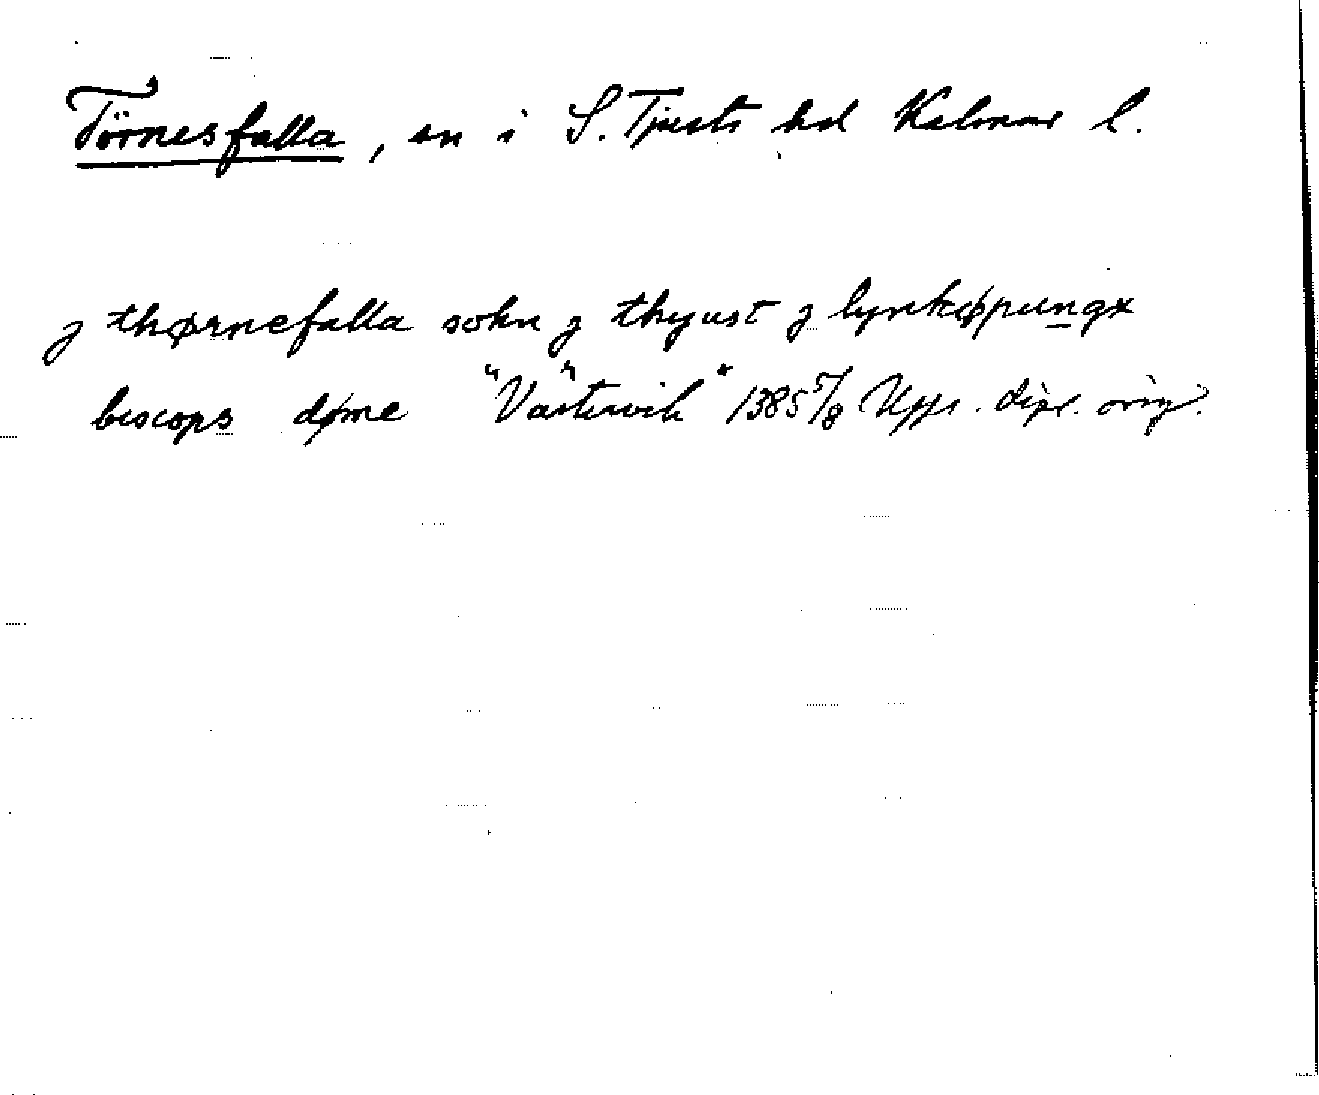 Törnesfalla, sn i S. Tjusts hd Kalmar l.
j thørnefalla sokn j thyust j lynkøpungx
biscops døme "Västervik" 1385 5/8 Upps. dipl. orig.